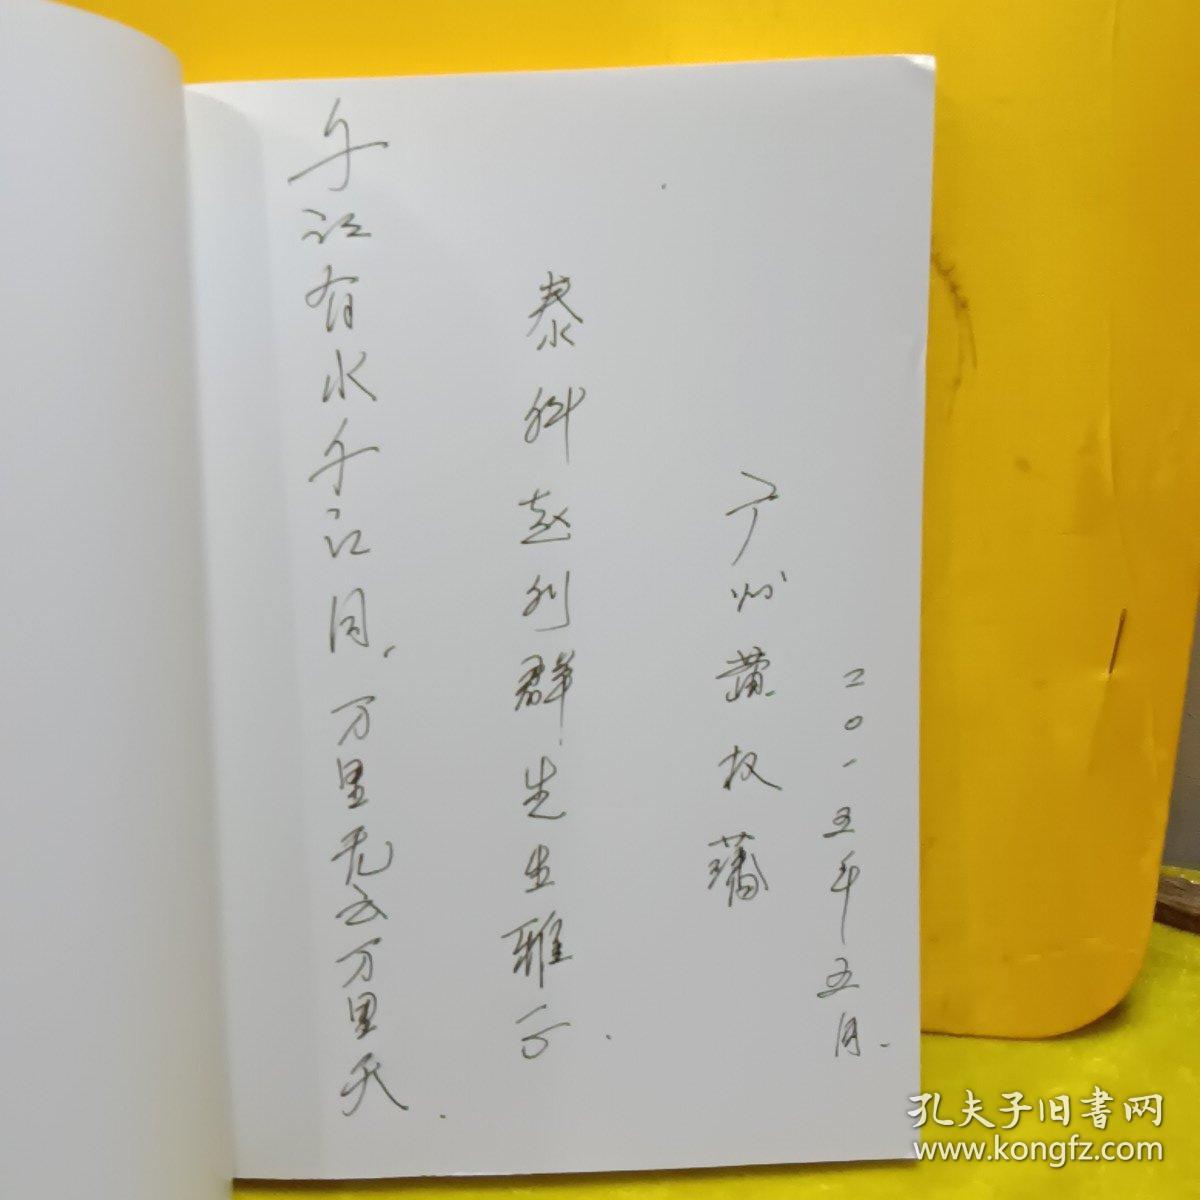 千江有水千江月，万里无云万里天．
泰科赵列群先生雅示．
广州黄权
二〇一五年五月．
孔夫子旧书网
www.kongfz.com